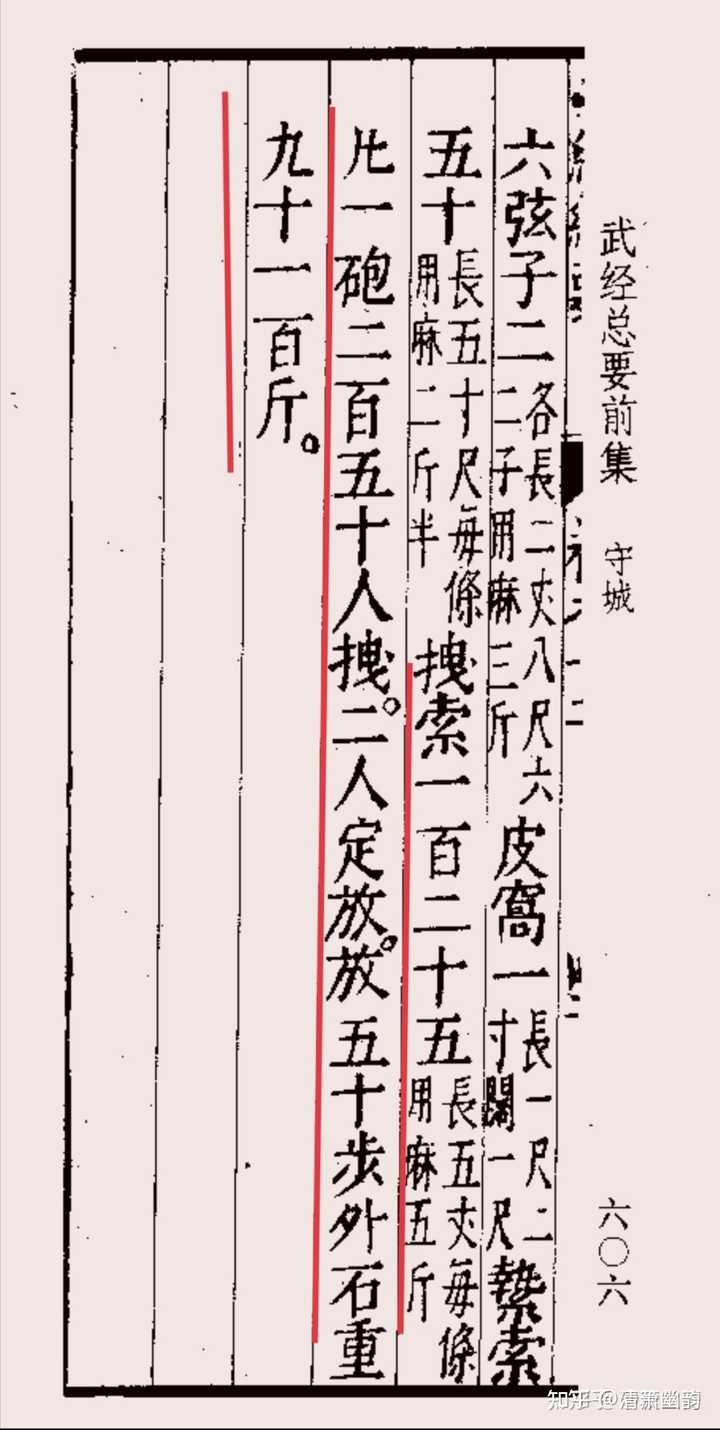 武经总要前集 守城 六〇六
六弦子二各長二丈八尺六二子用麻三斤皮窩一長一尺二寸闊一尺縶索
五十長五十尺每條用麻二斤半拽索一百二十五長五丈每條用麻五斤
凡一砲二百五十人拽。二人定放。放五十步外石重
九十一百斤。
知乎 @幽韵